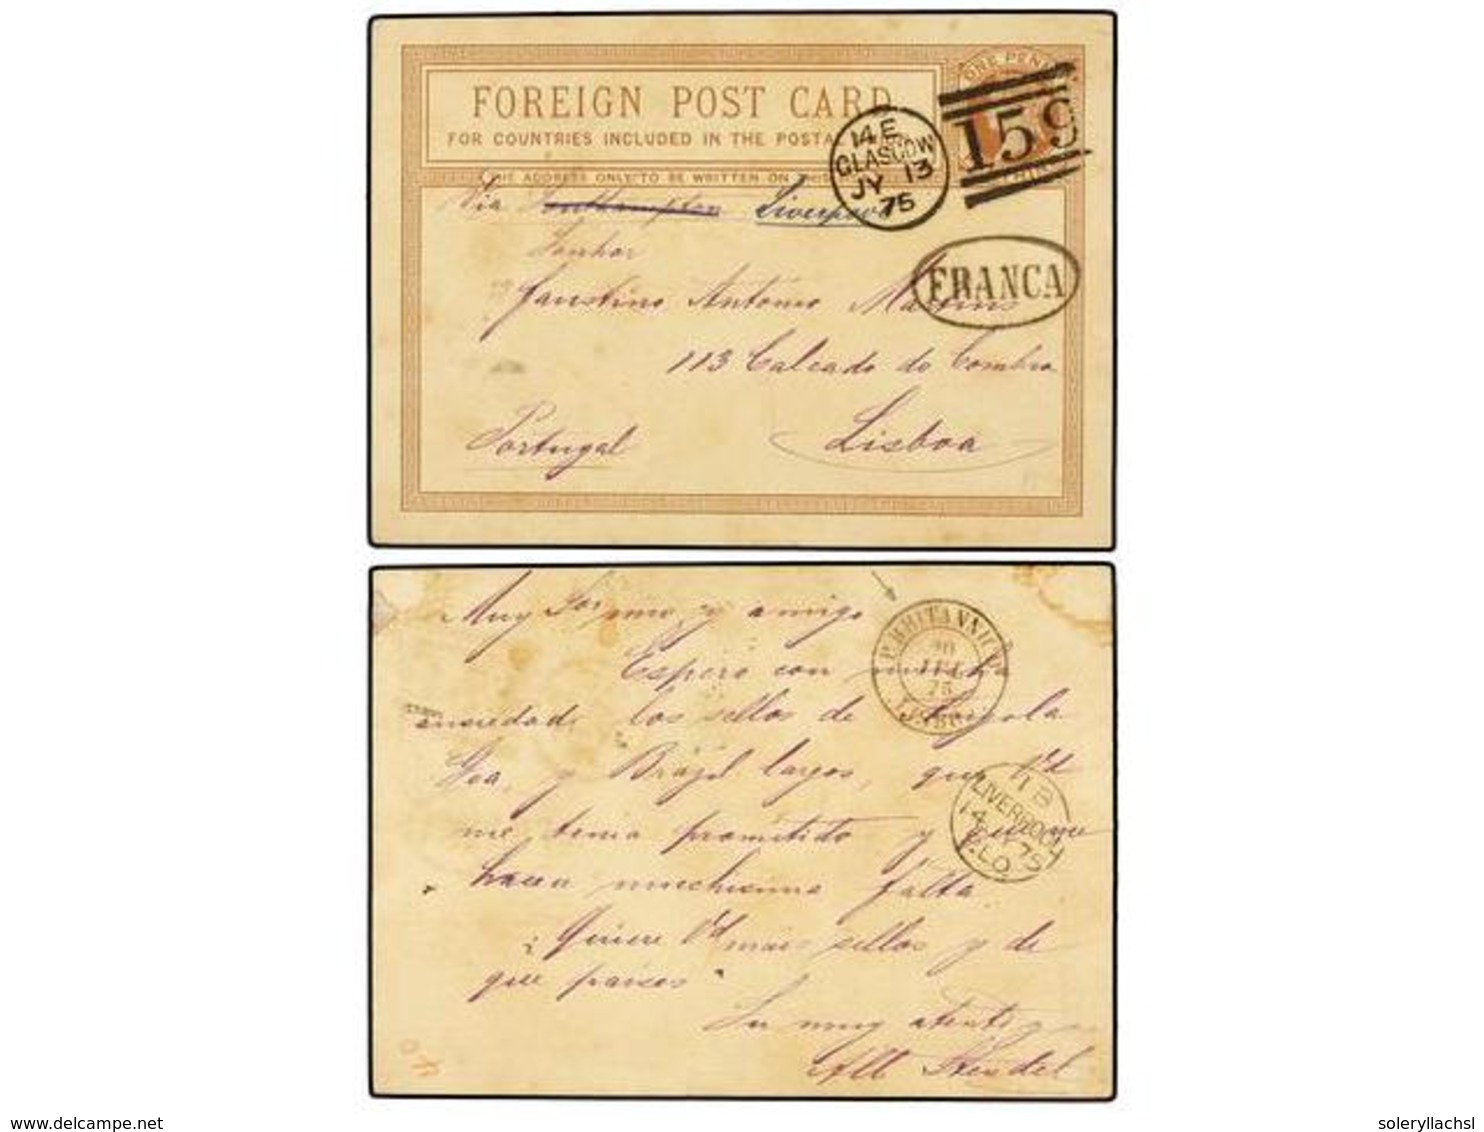 ONE PEN
FOREIGN POST CARD
FOR COUNTRIES INCLUDED IN THE POSTA
THE ADDRESS ONLY TO BE WRITTEN ON THIS
14 E
GLASGOW
JY 13
75
159
Via Southampton Liverpool
Senhor
FRANCA
Faustino Antonio Martins
113 Calcado do Combro
Lisboa
Portugal
Muy Sor mio, y amigo
Espero con mucha
ansiedad los sellos de Angola
Goa, y Brazil largos, que Vd
me tenia prometido y que me
hacen muchisima falta.
¿Quiere Vd mais sellos y de
que paises?
Su muy atento
P. BRITANNICO
20
JUL
75
LISBOA
11 B
LIVERPOOL
14
75
delcampe.net
soleryllachsl